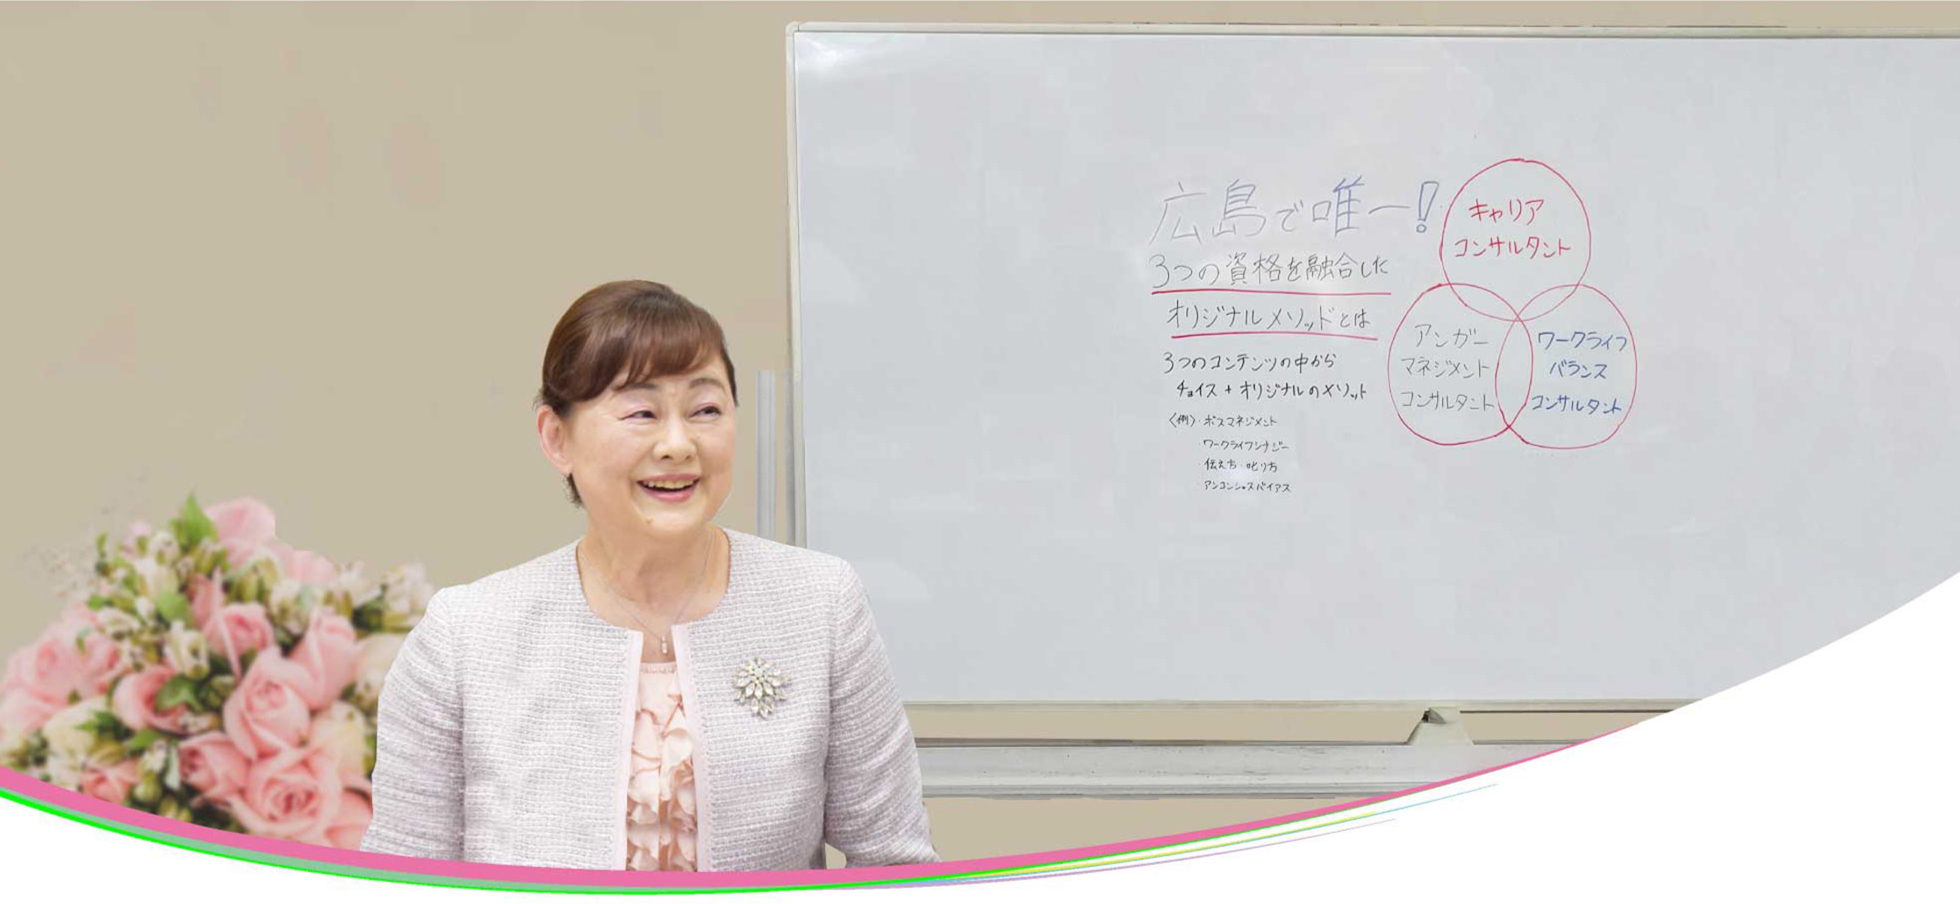 広島で唯一!
3つの資格を融合した
オリジナルメソッドとは
3つのコンテンツの中から
チョイス+オリジナルのメソット
〈例〉・ボスマネジメント
・ワークライフシナジー
・伝え方・叱り方
・アンコンシャスバイアス
キャリア
コンサルタント
アンガー
マネジメント
コンサルタント
ワークライフ
バランス
コンサルタント